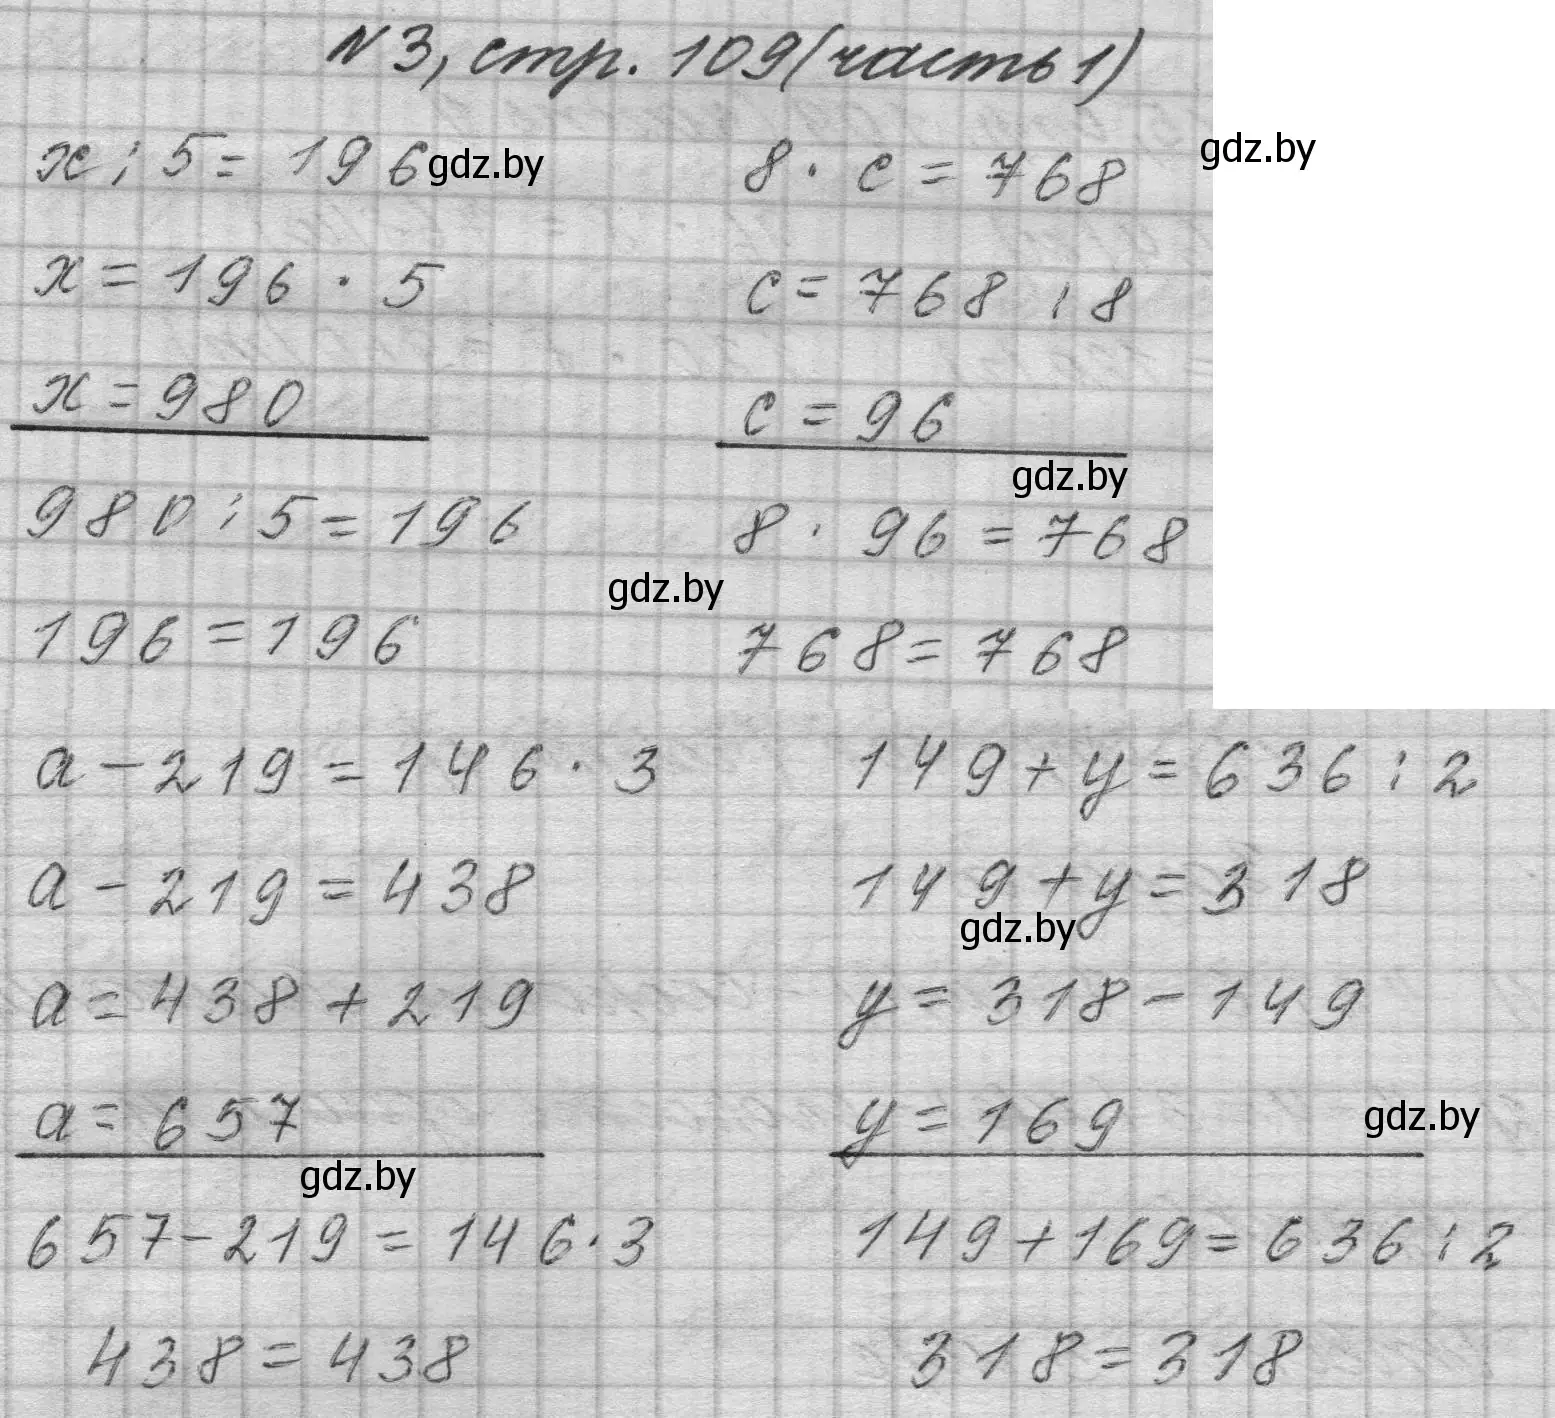 №3, стр. 109 (часть 1)
x : 5 = 196
gdz.by
x = 196 · 5
x = 980
980 : 5 = 196
196 = 196
8 · c = 768
gdz.by
c = 768 : 8
c = 96
gdz.by
8 · 96 = 768
gdz.by
768 = 768
a - 219 = 146 · 3
a - 219 = 438
a = 438 + 219
a = 657
gdz.by
657 - 219 = 146 · 3
438 = 438
149 + y = 636 : 2
149 + y = 318
gdz.by
y = 318 - 149
y = 169
gdz.by
149 + 169 = 636 : 2
318 = 318